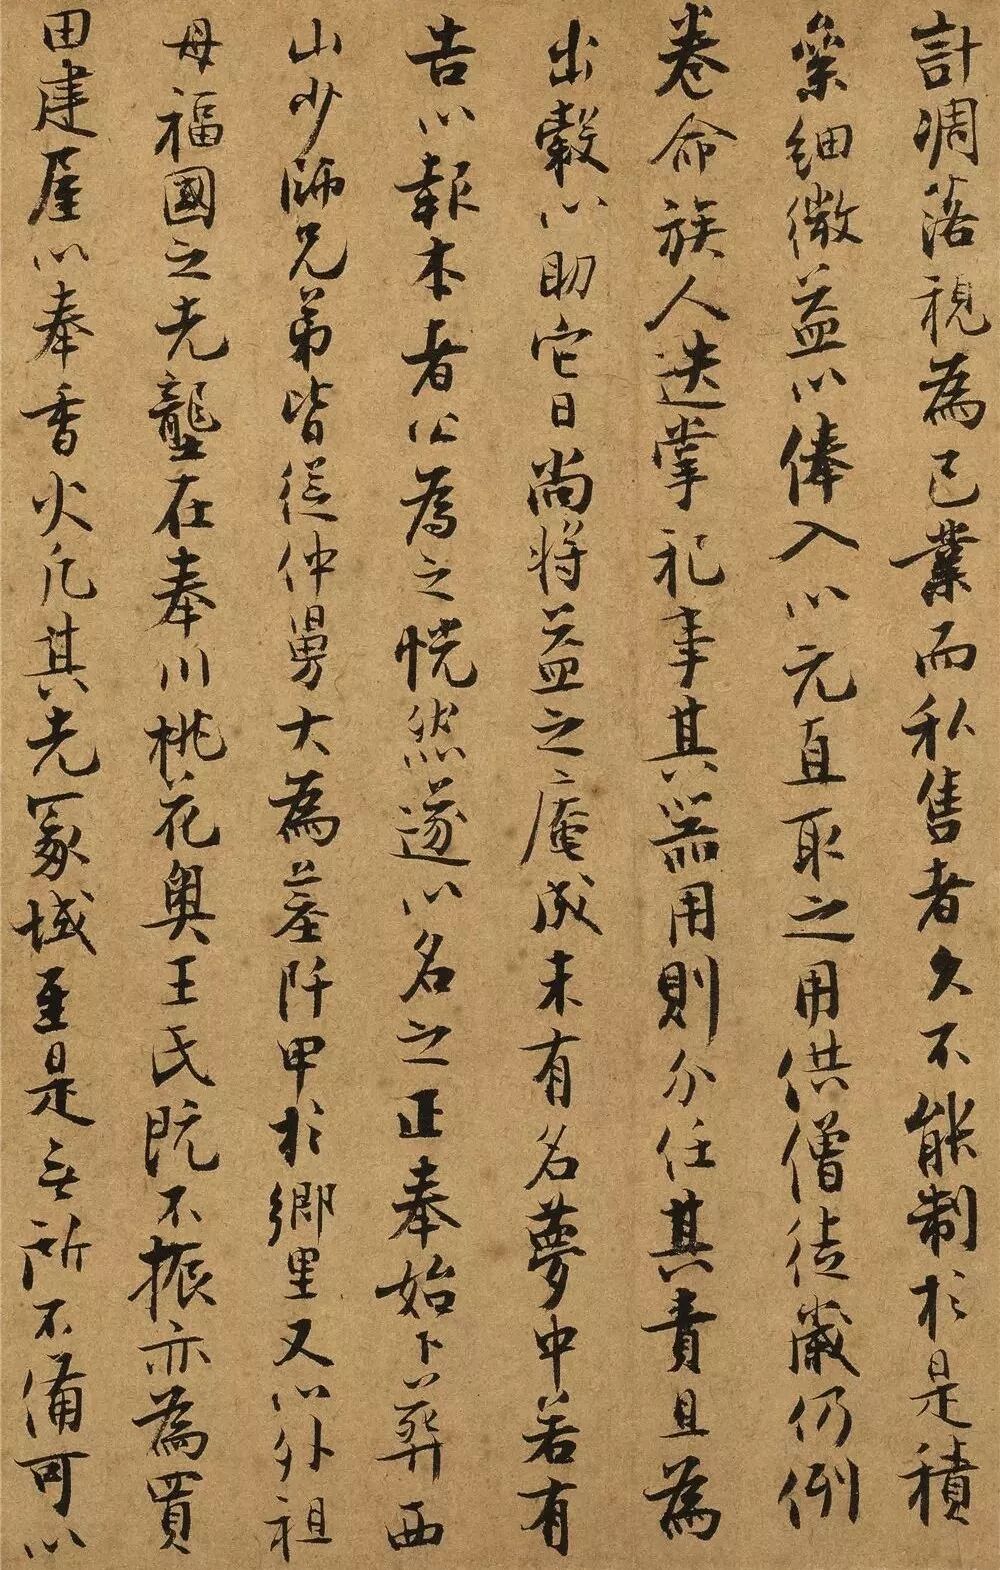 計凋落視為己業而私售者久不能制於是積
累細微益以俸入以元直取之用供僧徒嚴仍例
卷命族人迭掌祀事其器用則分任其責且為
出穀以助它日尚將益之庵成未有名夢中若有
告以報本者公為之恍然遂以名之正奉始卜葬西
山少師兄弟皆從仲舅大為墓阡甲於鄉里又以外祖
母福國之先壟在奉川桃花奧王氏既不振亦為買
田建屋以奉香火凡其先冢域至是無所不備可以